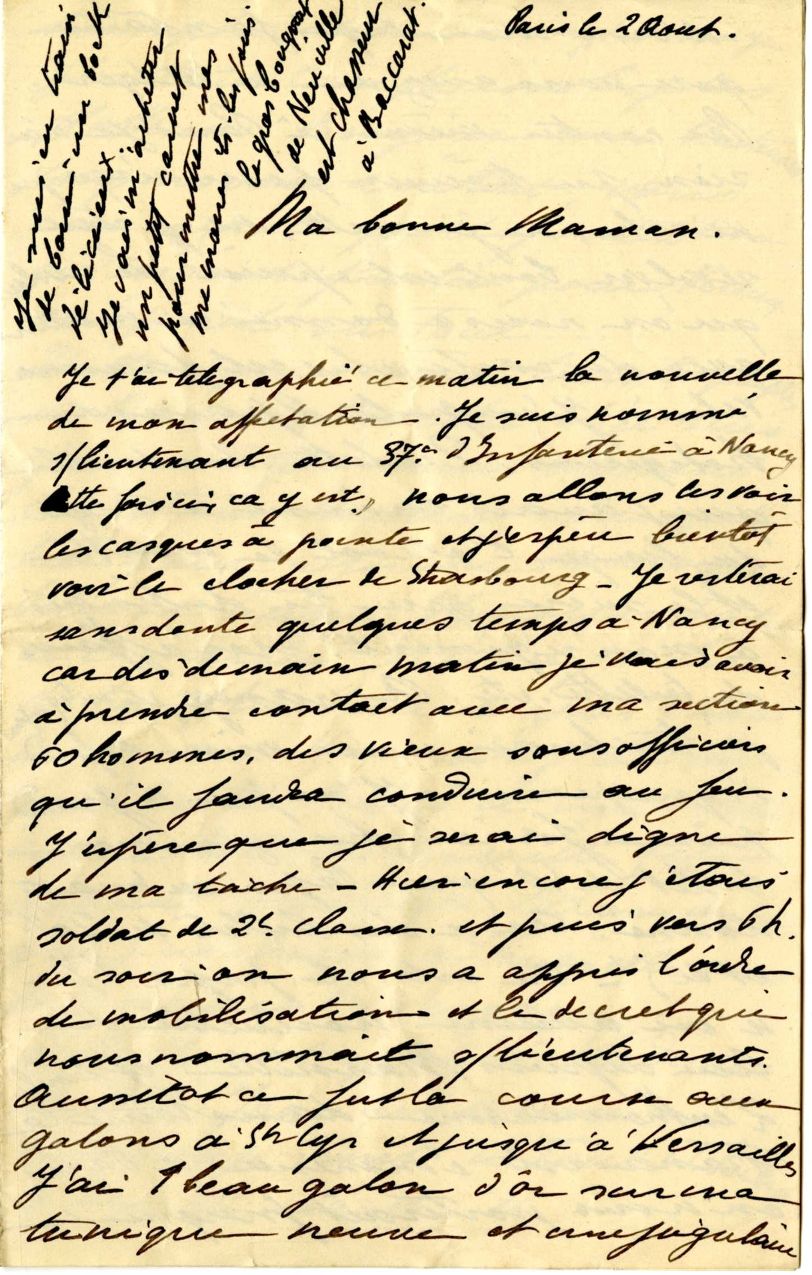 Paris le 2 Aout.
Je suis en train
de boire un bock
délicieux
Je vais m'acheter
un petit carnet
pour mettre mes
memoires
le gros
de Neuville
est chasseur
à Baccarat.
Ma bonne Maman.
Je t'ai telegraphié ce matin la nouvelle
de mon affectation. Je suis nommé
s/lieutenant au 37e d'Infanterie à Nancy
Cette fois ci, ca y est, nous allons les voir
les casques à pointe et j'espère bientôt
voir le clocher de Strasbourg - Je resterai
sans doute quelques temps à Nancy
car dès demain matin je vais avoir
à prendre contact avec ma section
60 hommes, des vieux sous officiers
qu'il faudra conduire au feu.
J'espère que je serai digne
de ma tâche - Hier encore j'etais
soldat de 2e classe. et puis vers 6 h.
du soir on nous a appris l'ordre
de mobilisation et le decret qui
nous nommait s/lieutenants.
Aussitôt ce fut la course aux
galons à St Cyr et jusqu'à Versailles
J'ai 1 beau galon d'or sur ma
tunique neuve et une jugulaire